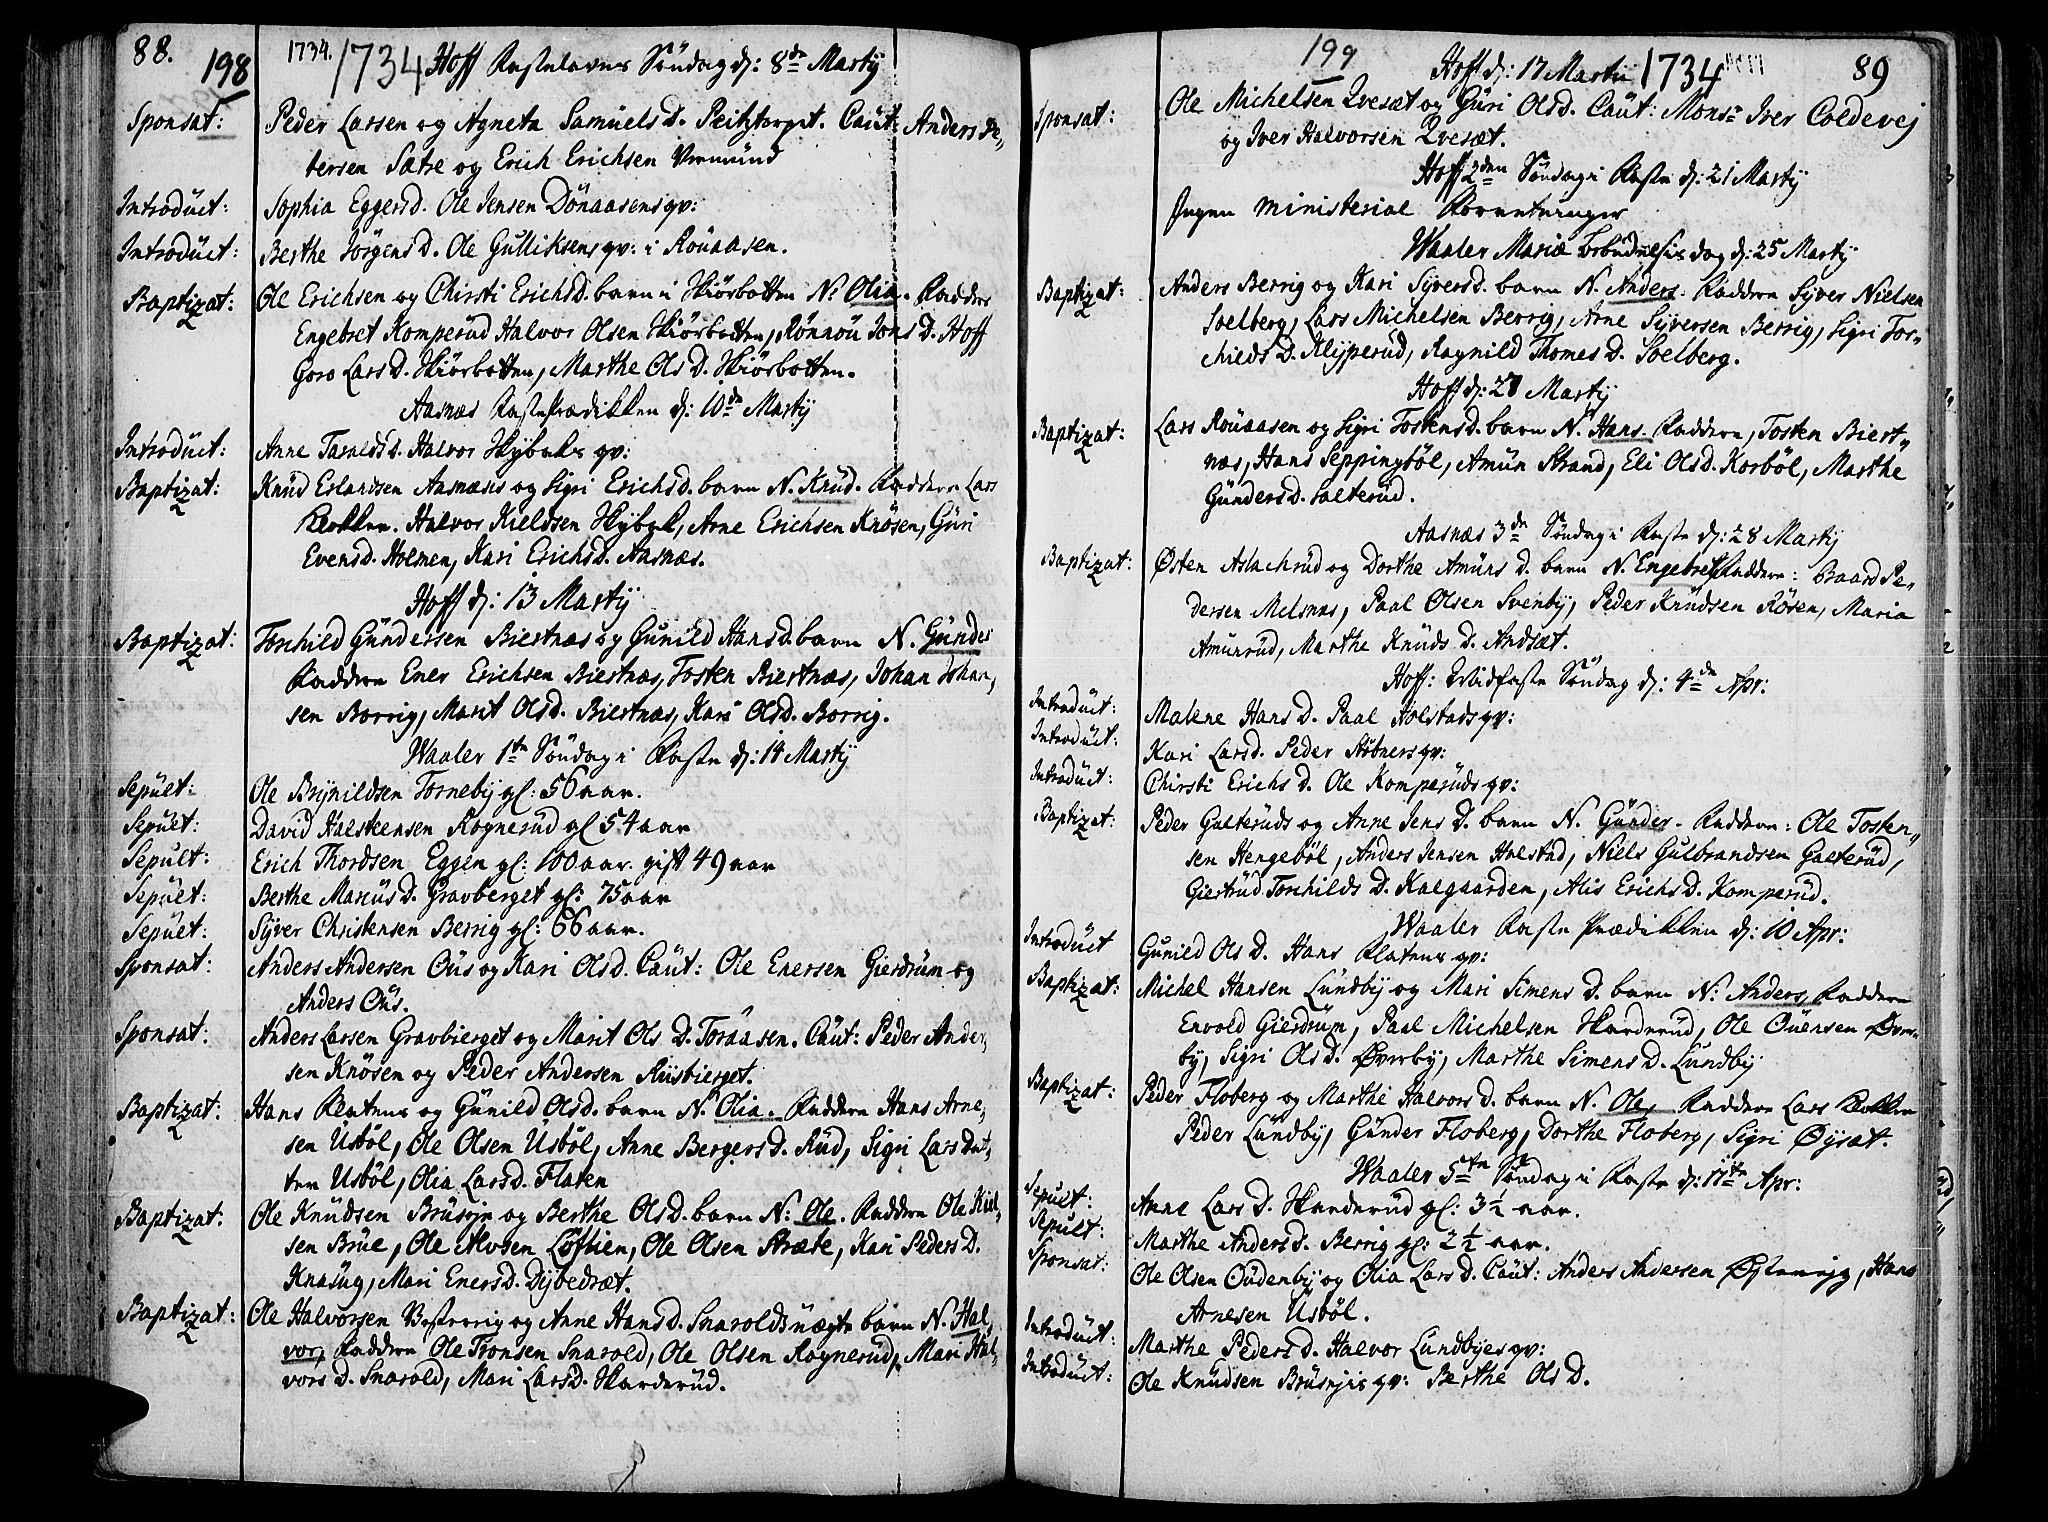 88.
198
1734. 1734 Hoff Fastelavns Söndag d: 8de Martij
Sponsat: Peder Larsen og Agneta Samuels D. Peiltorpet. Caut: Anders Pe-
tersen Sætre og Erich Erichsen Vermund
Introduct: Sophia Eggersd. Ole Jensen Dönaasens qv:
Introduct: Berthe Jörgens D. Ole Gulliksens qv: i Rouaasen.
Baptizat: Ole Erichsen og Chirsti Erichsd. barn i Skiörbotten N: Olia. Faddere
Engebret Komperud Halvor Olsen Skiörbotten, Rönnou Jons D. Hoff
Goro Lars D. Skiörbotten, Marthe Ols D. Skiörbotten.
Aasnæs Fasteprædikken d: 10de Martij
Introduct: Anne Taralds d. Halvor Skybaks qv:
Baptizat: Knud Erlandsen Aasnæses og Sigri Erichs d. barn N. Knud. Faddere Lars
Klokker. Halvor Kieldsen Skybak, Arne Erichsen Knösen, Guri
Evensd. Holmen, Kari Erichsd. Aasnæs.
Hoff d: 13 Martij
Baptizat: Torchild Gundersen Biertnæs og Gunild Hansd. barn N. Gunder
Faddere Ener Erichsen Biertnæs, Tosten Biertnæs, Johan Johan-
sen Borrig, Marit Olsd. Biertnæs, Kari Olsd. Borrig.
Waaler 1te Söndag i Faste d: 14 Martij
Sepult: Ole Brynildsen Torneby gl: 56 aar.
Sepult: David Halsteensen Rognerud gl 54 aar
Sepult: Erich Thordsen Eggen gl: 100 aar. gift 49 aar
Sepult: Berthe Marcus D. Gravberget gl: 75 aar
Sepult: Syver Christensen Berrig gl: 66 aar.
Sponsat: Anders Andersen Ous og Kari Olsd. Caut: Ole Enersen Gierdrum og
Anders Ous.
Sponsat: Anders Larsen Gravbierget og Marit Ols D. Toraasen. Caut: Peder Ander-
sen Knösen og Peder Andersen Riisbierget.
Baptizat: Hans Flatens og Gunild Olsd. barn N. Olia. Faddere Hans Arne-
sen Usböl, Ole Olsen Usböl, Anne Bergers D. Rud, Sigri Lars dat-
ter Usböl, Olia Larsd. Flaten
Baptizat: Ole Knudsen Brusojr og Berthe Ols D. barn N: Ole. Faddere Ole Kiel-
sen Brue, Ole Alvsen Löftien, Ole Olsen Stræte, Kari Peders D.
Knasug, Mari Eners D. Dybedræt.
Baptizat: Ole Halvorsen og Anne Hans D. Snarolds barn N. Hal-
vor, Faddere Ole Tronsen Snarold, Ole Olsen Rognerud, Mari Hal-
vors D. Snarold, Mari Larsd. Skarderud.
199
Hoff d: 17 Martij 1734 89
Sponsat: Ole Michelsen Qvesæt og Guri Olsd. Caut: Monsr Iver Coldevej
og Iver Halvorsen Qvesæt.
Hoff 2den Söndag i Faste d: 21 Martij
Ingen Ministerial Forretninger
Waaler Mariæ Bebudelses dag d: 25 Martij
Baptizat: Anders Berrig og Kari Syversd. barn N. Anders. Faddere Syver Nielsen
Soelberg, Lars Michelsen Berrig, Arne Syversen Berrig, Sigri Tor-
chields D. Klypperud, Ragnild Thomes D. Soelberg.
Hoff d: 27 Martij
Baptizat: Lars Rouaasen og Sigri Tostensd. barn N. Hans. Faddere, Tosten Biert-
næs, Hans Seppingböl, Amun Strand, Eli Olsd. Korböl, Marthe
Gunders D. Salterud.
Aasnæs 3de Söndag i Faste d: 28 Martij
Baptizat: Østen Aslachrud og Dorthe Amuns D. barn N. Engebret Faddere: Baard Pe-
dersen Melsnæs, Paal Olsen Svenby, Peder Knudsen Rösen, Maria
Amunrud, Marthe Knuds D. Andsæt.
Hoff: Midfaste Söndag d: 4de Apr:
Introduct: Malene Hans D. Paal Holstads qv:
Introduct: Kari Larsd. Peder Stöbners qv:
Introduct: Chirsti Erichs D. Ole Komperuds qv:
Baptizat: Peder Galteruds og Anne Jens D. barn N. Gunder. Faddere: Ole Tosten-
sen Hengeböl, Anders Jensen Holstad, Niels Gulbrandsen Galterud,
Giertrud Torchilds D. Kalgaarden, Alis Erichs D. Komperud.
Waaler Faste Prædikken d: 10 Apr:
Introduct Gunild Ols D. Hans Flatens qv:
Baptizat: Michel Hansen Lundby og Mari Simens D. barn N: Anders, Faddere
Envold Gierdrum, Paal Michelsen Skarderud, Ole Ouensen Øver-
by, Sigri Ols D. Øverby, Marthe Simens D. Lundby
Baptizat: Peder Floberg og Marthe Halvors D. barn N. Ole, Faddere Lars Klokker
Peder Lundby, Gunder Floberg, Dorthe Floberg, Sigri Øysæt.
Waaler 5te Söndag i Faste d: 11te Apr:
Sepult: Anne Lars D. Skarderud gl: 3½ aar.
Sepult: Marthe Anders D. Berrig gl: 2½ aar.
Sponsat: Ole Olsen Oudenby og Olia Lars D. Caut: Anders Andersen, Hans
Arnesen Usböl.
Introduct: Marthe Peders D. Halvor Lundbyes qv:
Introduct: Ole Knudsen Brusojes qv: Berthe Ols D.